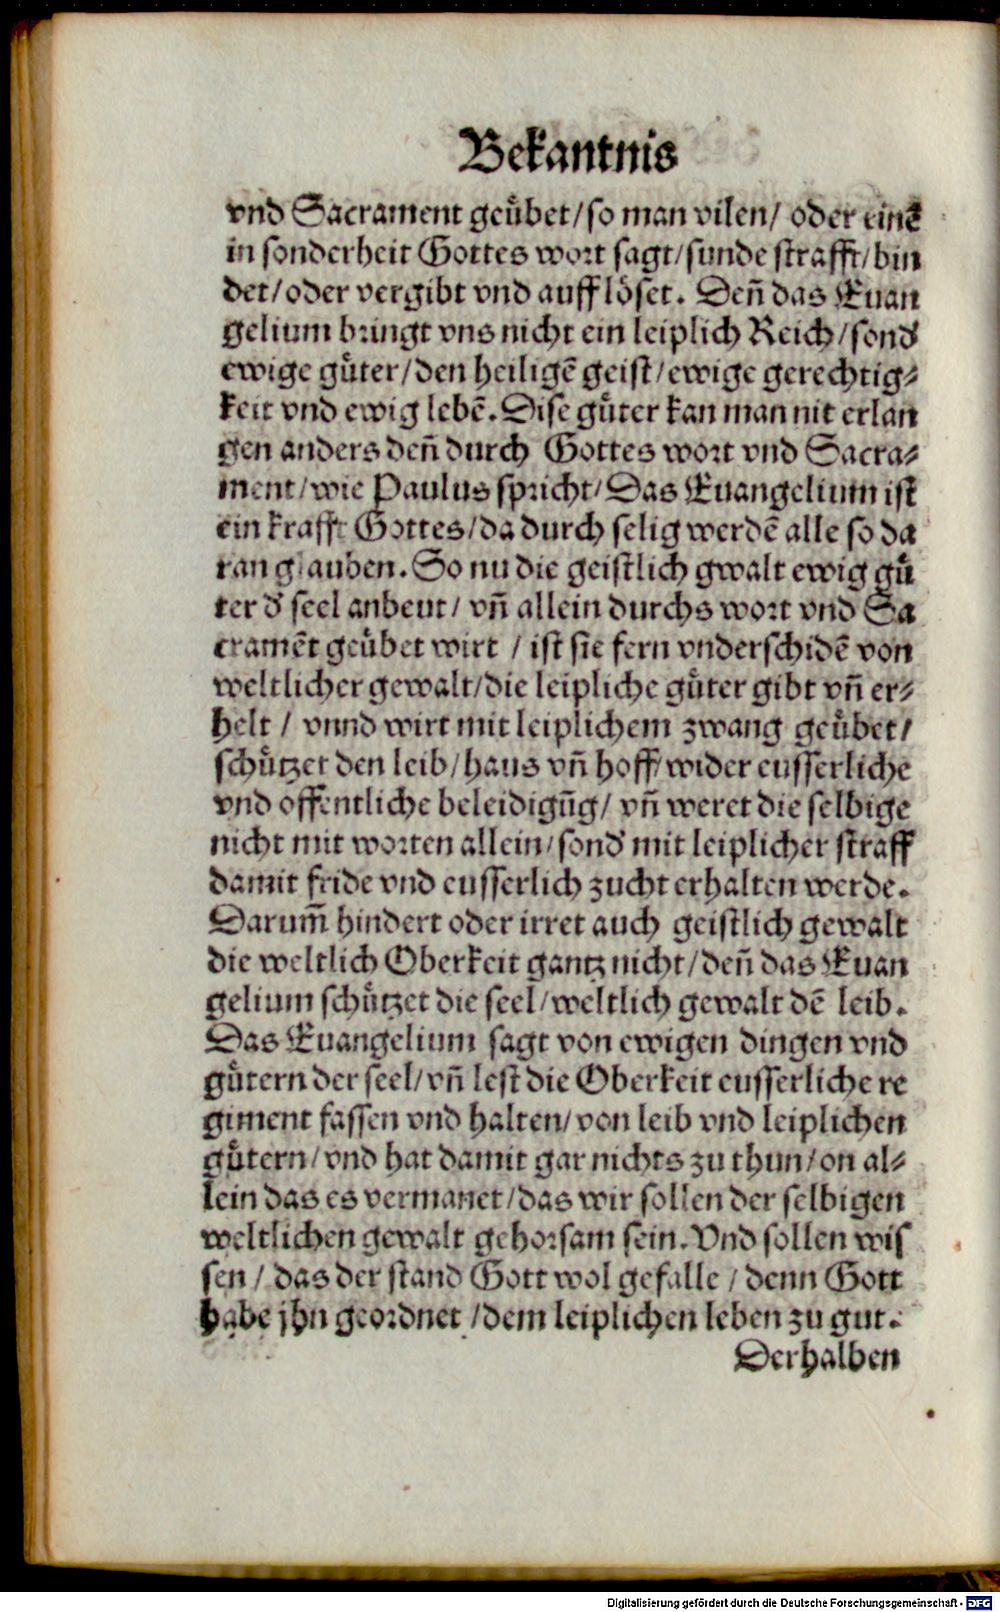 Bekantnis
vnd Sacrament geuͤbet/so man vilen/ oder einẽ
in sonderheit Gottes wort sagt/sunde strafft/bin
det/oder vergibt vnd auff löset. Deñ das Euan
gelium bringt vns nicht ein leiplich Reich/sond'
ewige guͤter/den heiligẽ geist/ewige gerechtig⸗
keit vnd ewig lebẽ. Dise guͤter kan man nit erlan
gen anders deñ durch Gottes wort vnd Sacra⸗
ment/wie Paulus spricht/Das Euangelium ist
ein krafft Gottes/da durch selig werdẽ alle so da
ran glauben. So nu die geistlich gwalt ewig guͤ
ter d' seel anbeut/ vñ allein durchs wort vnd Sa
cramẽt geuͤbet wirt / ist sie fern vnderschidẽ von
weltlicher gewalt/die leipliche guͤter gibt vñ er⸗
helt / vnnd wirt mit leiplichem zwang geuͤbet/
schuͤtzet den leib/haus vñ hoff/wider eusserliche
vnd offentliche beleidigũg/ vñ weret die selbige
nicht mit worten allein/sond' mit leiplicher straff
damit fride vnd eusserlich zucht erhalten werde.
Darum̃ hindert oder irret auch geistlich gewalt
die weltlich Oberkeit gantz nicht/deñ das Euan
gelium schuͤtzet die seel/weltlich gewalt dẽ leib.
Das Euangelium sagt von ewigen dingen vnd
guͤtern der seel/vñ lest die Oberkeit eusserliche re
giment fassen vnd halten/von leib vnd leiplichen
guͤtern/vnd hat damit gar nichts zu thun/on al⸗
lein das es vermanet/das wir sollen der selbigen
weltlichen gewalt gehorsam sein. Vnd sollen wis
sen / das der stand Gott wol gefalle / denn Gott
habe jhn geordnet /dem leiplichen leben zu gut.
Derhalben
Digitalisierung gefördert durch die Deutsche Forschungsgemeinschaft - DFG